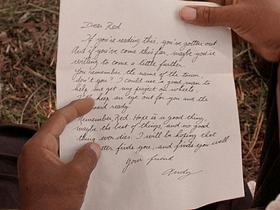 Dear Red
If you're reading this, you've gotten out
And if you've come this far, maybe you're
willing to come a little further.
You remember the name of the town,
don't you? I could use a good man to
help me get my project on wheels.
keep an eye out for you and the
board ready.
Remember, Red. Hope is a good thing,
maybe the best of things, and no good
thing ever dies. I will be hoping that
letter finds you, and finds you well
Your friend
Andy